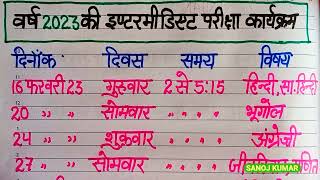 वर्ष 2023 की इण्टरमीडिएट परीक्षा कार्यक्रम
दिनाँक दिवस समय विषय
16 फरवरी 23 गुरूवार 2 से 5:15 हिन्दी, सा. हिन्दी
20 " " सोमवार " " " " भूगोल
24 " " शुक्रवार " " " " अंग्रेजी
27 " " सोमवार " " " "
SANOJ KUMAR